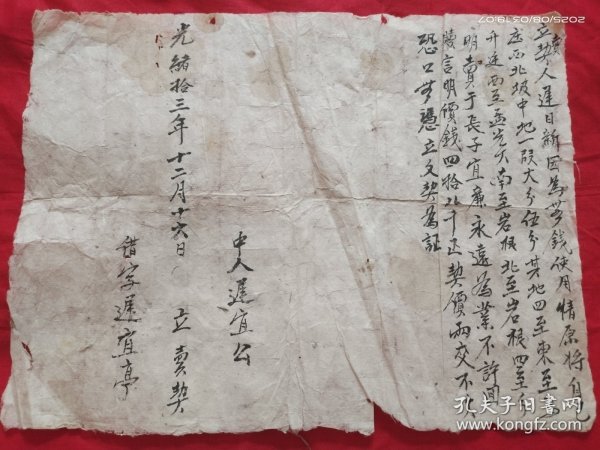 立賣契人遲日新因為無錢使用情原将自己
庄西北坡中地一段大分伍分其地四至東至
升廷西至孟光天南至岩根北至岩根四至
明賣于長子宜廉永遠為業不許
言明價錢四拾千正契價兩交不欠
恐口無憑立文契為証
中人遲宜公
光緒拾三年十二月十六日 立賣契
借字遲宜亭
2025/08/05 18:07
孔夫子旧書网
www.kongfz.com